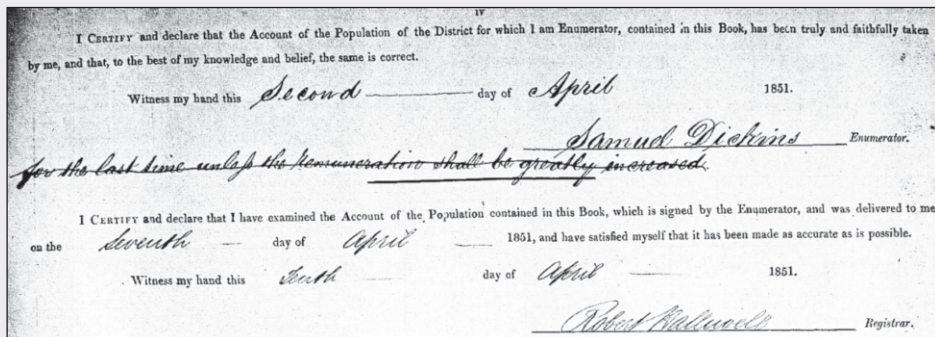 IV
I CERTIFY and declare that the Account of the Population of the District for which I am Enumerator, contained in this Book, has been truly and faithfully taken
by me, and that, to the best of my knowledge and belief, the same is correct.
Witness my hand this Second day of April 1851.
Samuel Dickins Enumerator.
for the last time unless the Remuneration shall be greatly increased.
I CERTIFY and declare that I have examined the Account of the Population contained in this Book, which is signed by the Enumerator, and was delivered to me
on the Seventh day of April 1851, and have satisfied myself that it has been made as accurate as is possible.
Witness my hand this Tenth day of April 1851.
Robert Registrar.